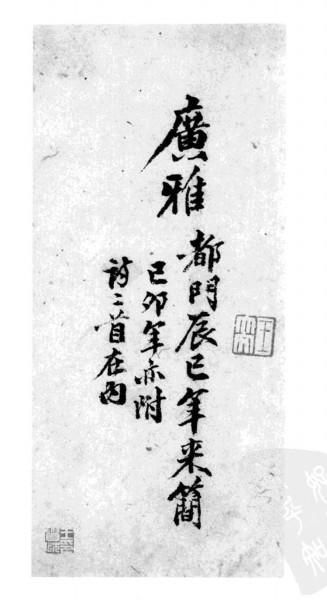 廣雅 都門辰巳年来簡
己卯年亦附
詩二首在内